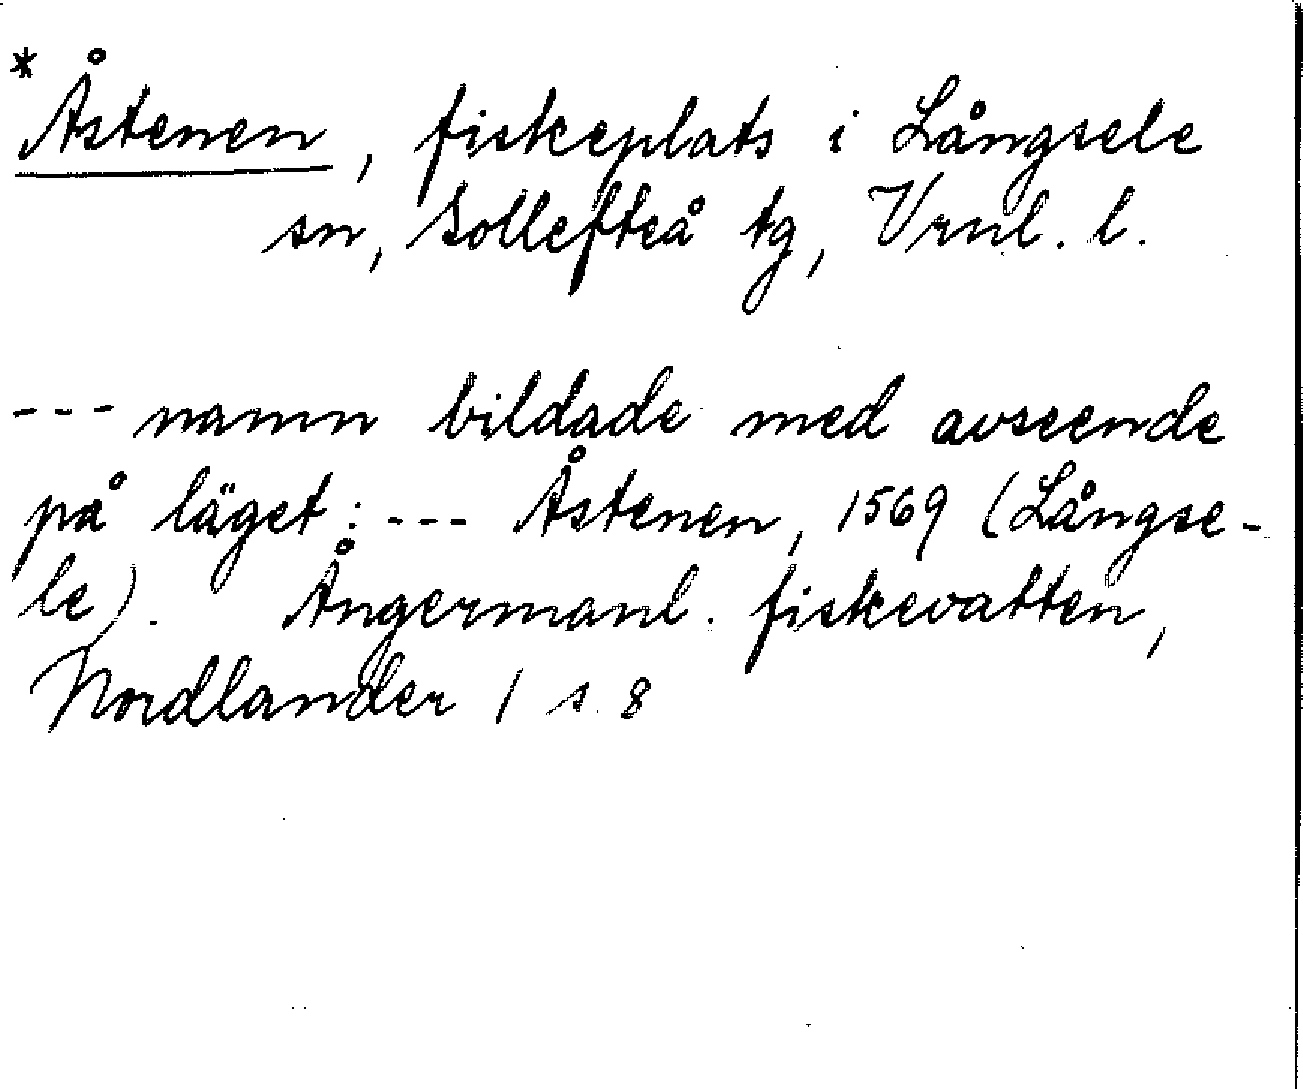 *Åstenen, fiskeplats i Långsele
sn, Sollefteå tg, Vrnl. l.
--- namn bildade med avseende
på läget: --- Åstenen, 1569 (Långse-
le). Ångermanl. fiskevatten,
Nordlander 1 s. 8